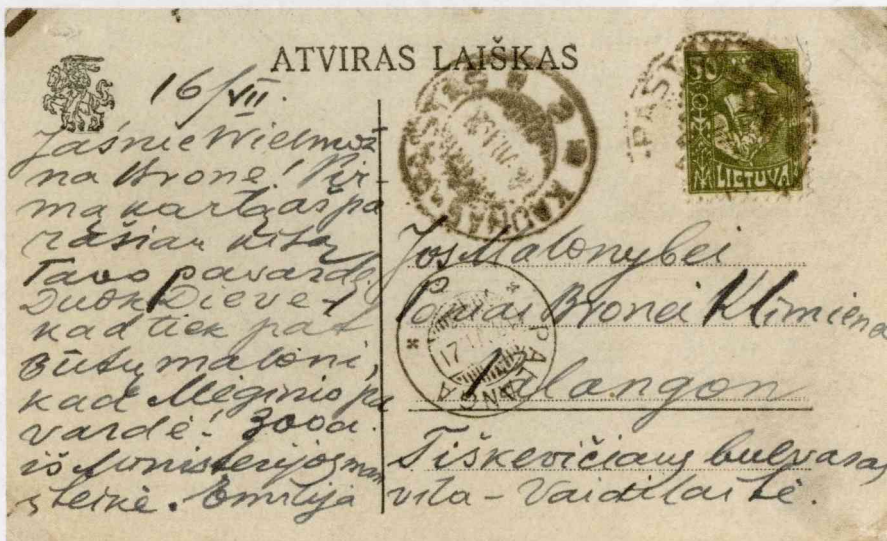 ATVIRAS LAIŠKAS
16/VII.
Jaśnie Wielmoż
na Brone! Pir-
mą kartą aš pa
rašiau kitą
Tavo pavardę.
Duok Dieve-
kad tiek pat
būtų maloni,
kad Mėginio pa
vardė! 300 a.
iš Ministerijos man
steikė. Emilija
KAUNAS
PAŠTAS
2
50
LIETUVA
Jos Malonybei
Poniai Bronei Klimienei
Palangon
Tiškevičiaus bulvaras,
vila - Vaidilaitė.
PALANGA
17